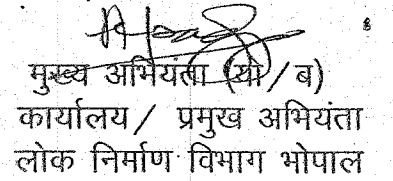 मुख्य अभियंता (यो/ब)
कार्यालय/ प्रमुख अभियंता
लोक निर्माण विभाग भोपाल